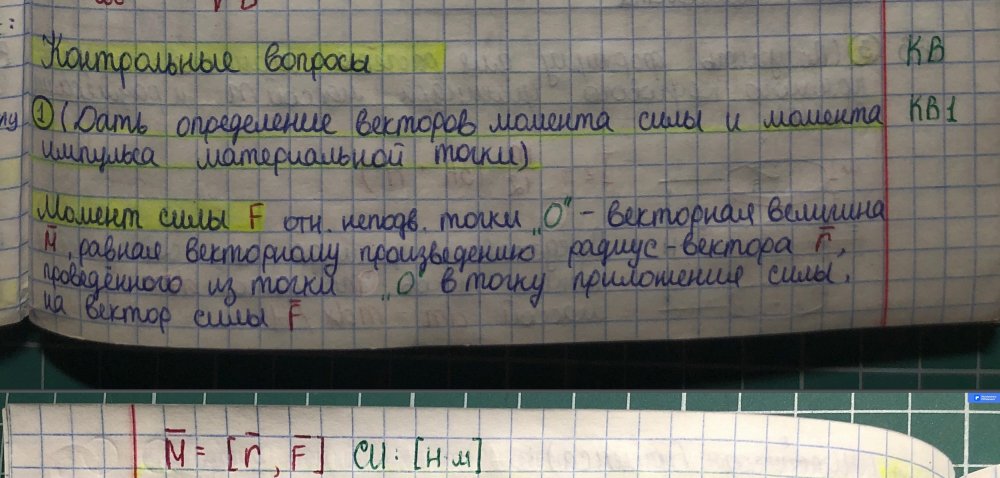 Контрольные вопросы КВ
① (Дать определение векторов момента силы и момента КВ1
импульса материальной точки)
Момент силы F отн. неподв. точки „О" – векторная величина
M̄, равная векторному произведению радиус-вектора r̄,
проведённого из точки „О" в точку приложения силы,
на вектор силы F̄
M̄ = [r̄, F̄] СИ: [Н·м]